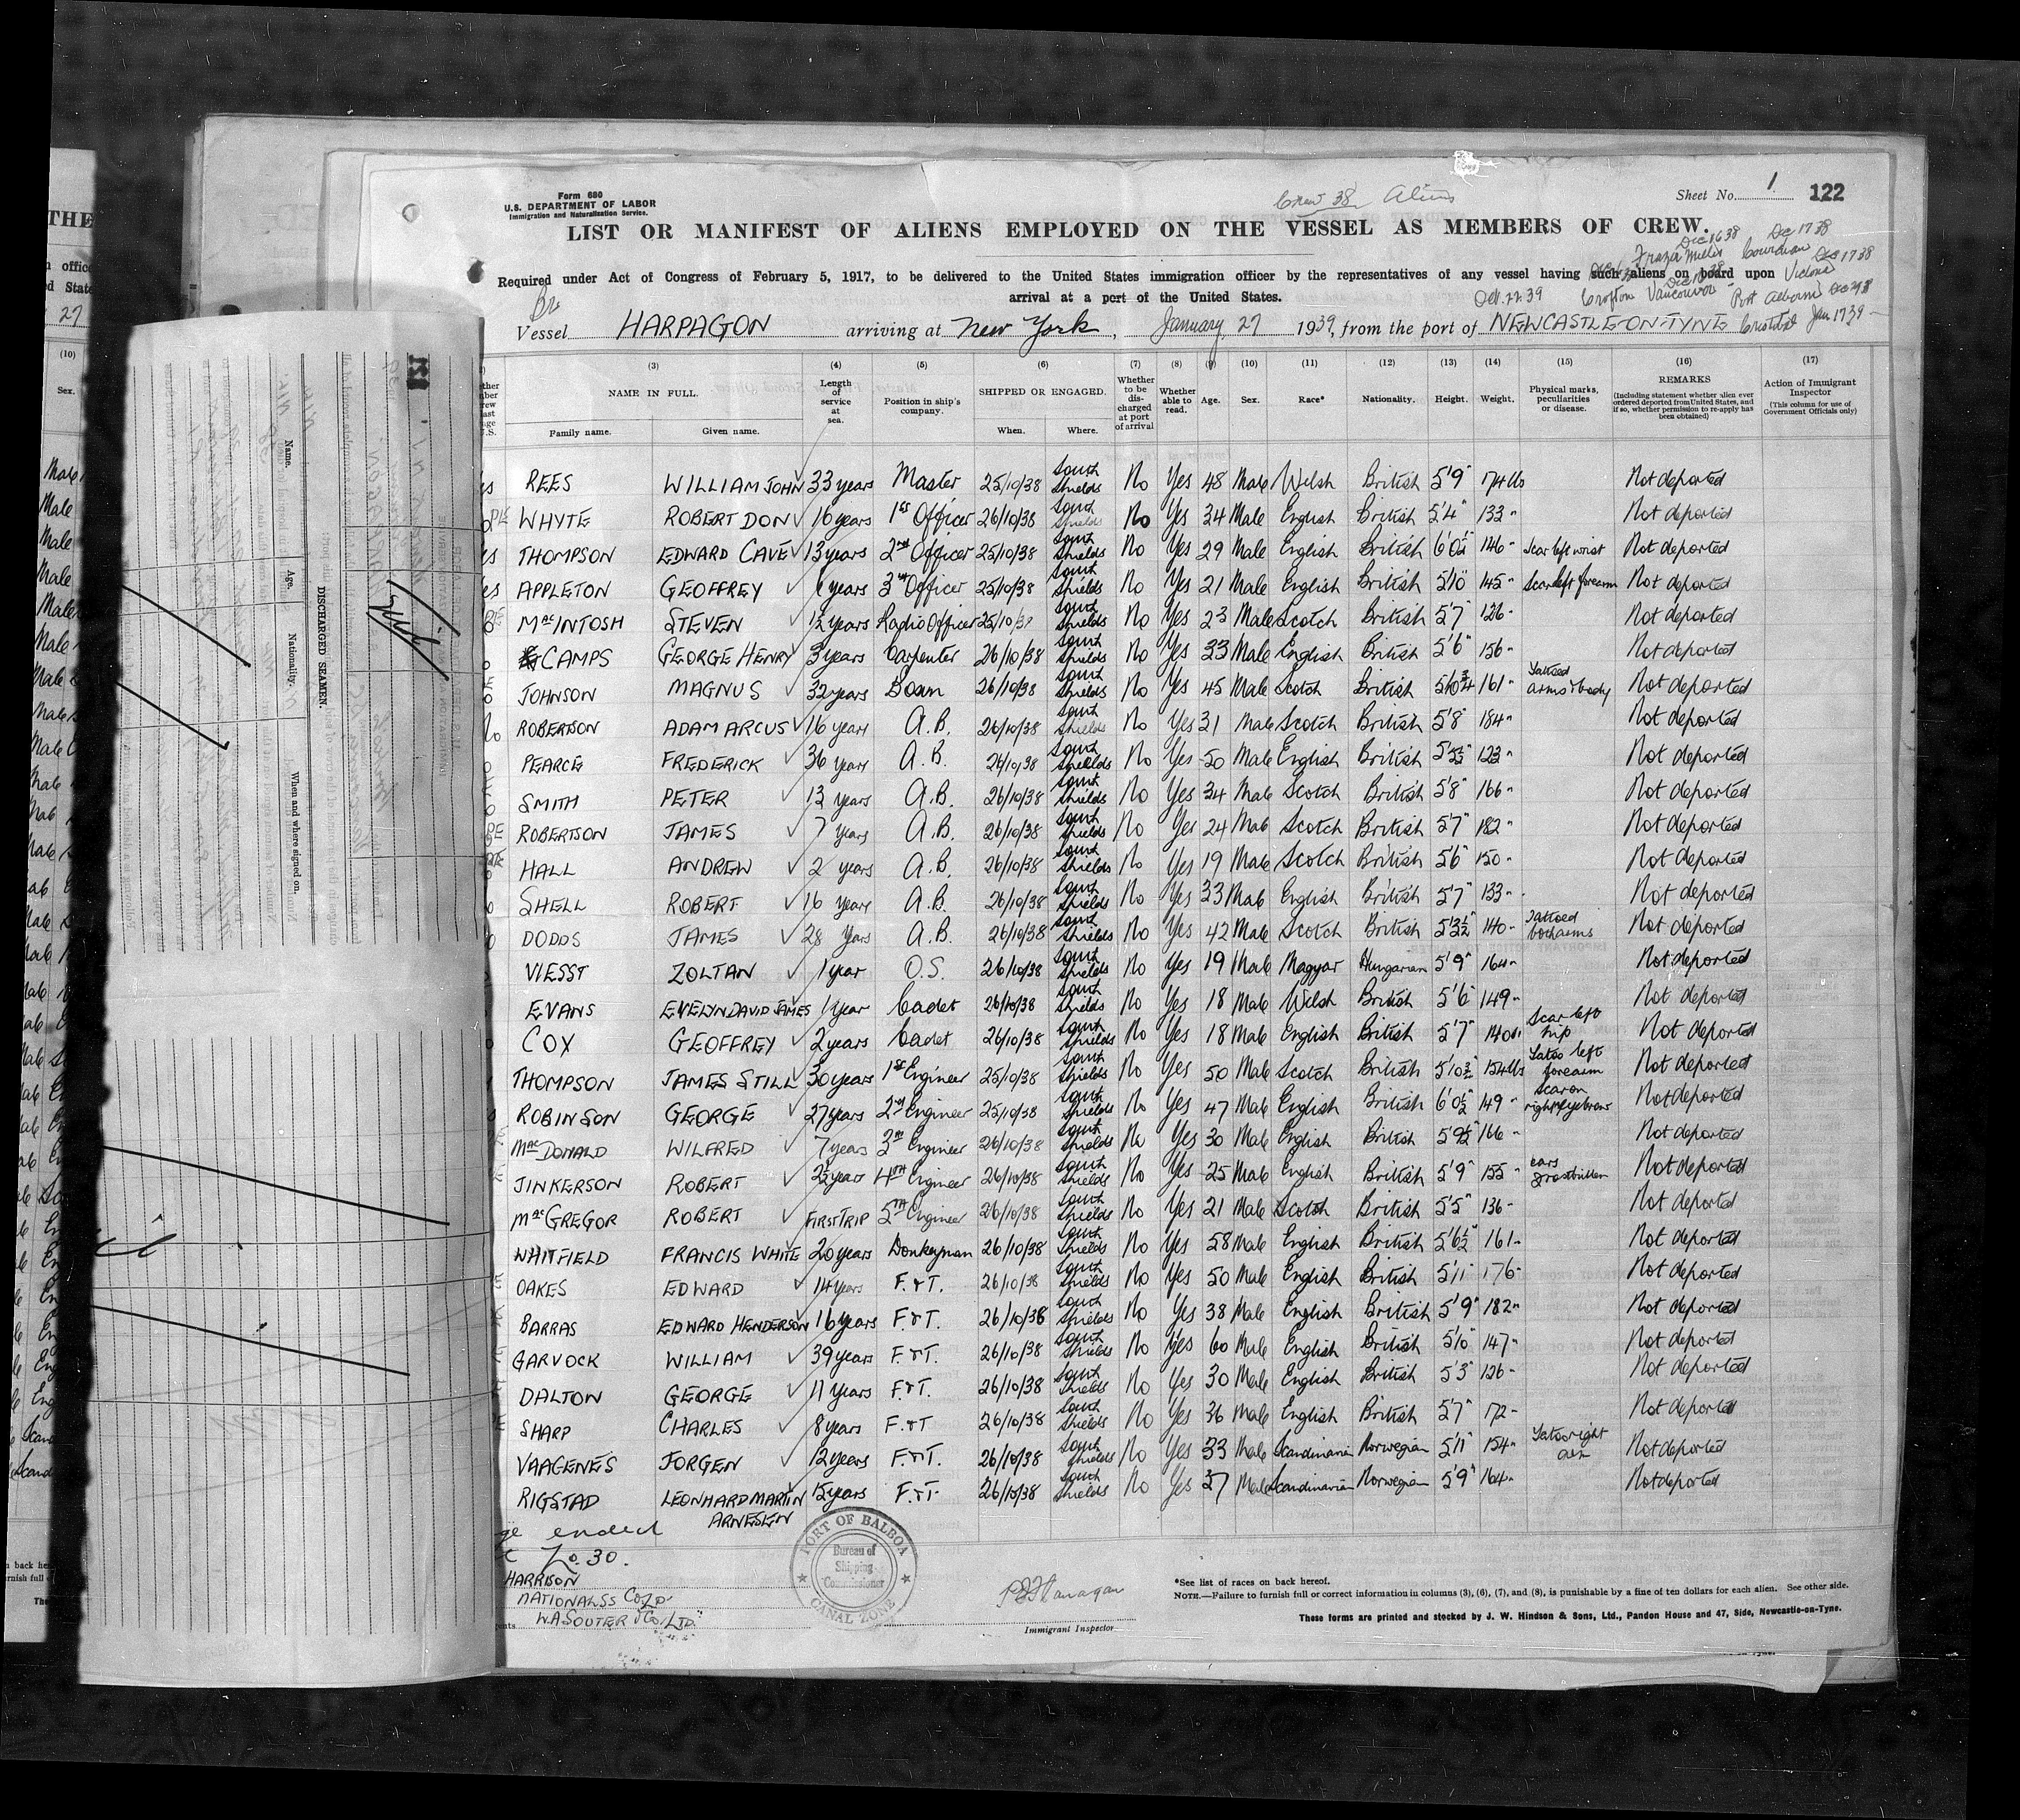 Form 680
U.S. DEPARTMENT OF LABOR
Immigration and Naturalization Service.
Crew 38 Aliens
Sheet No. 1 122
LIST OR MANIFEST OF ALIENS EMPLOYED ON THE VESSEL AS MEMBERS OF CREW.
Required under Act of Congress of February 5, 1917, to be delivered to the United States immigration officer by the representatives of any vessel having such aliens on board upon
arrival at a port of the United States.
Vessel HARPAGON arriving at New York, January 27 1939, from the port of NEWCASTLE-ON-TYNE
(3) (4) (5) (6) (7) (8) (9) (10) (11) (12) (13) (14) (15) (16) (17)
NAME IN FULL. Family name. Given name. Length of service at sea. Position in ship's company. SHIPPED OR ENGAGED. When. Where. Whether to be discharged at port of arrival Whether able to read. Age. Sex. Race* Nationality. Height. Weight. Physical marks, peculiarities or disease. REMARKS (Including statement whether alien ever ordered deported from United States, and if so, whether permission to re-apply has been obtained) Action of Immigrant Inspector (This column for use of Government Officials only)
REES WILLIAM JOHN 33 years Master 25/10/38 South Shields No Yes 48 Male Welsh British 5'9" 174 lbs Not deported
WHYTE ROBERT DON 16 years 1st Officer 26/10/38 South Shields No Yes 34 Male English British 5'4" 133" Not deported
THOMPSON EDWARD CAVE 13 years 2nd Officer 25/10/38 South Shields No Yes 29 Male English British 6'0½" 146" Scar left wrist Not deported
APPLETON GEOFFREY years 3rd Officer 25/10/38 South Shields No Yes 21 Male English British 5'10" 145" Scar left forearm Not deported
MacINTOSH STEVEN years Radio Officer 25/10/38 South Shields No Yes 23 Male Scotch British 5'7" 126" Not deported
CAMPS GEORGE HENRY 3 years Carpenter 26/10/38 South Shields No Yes 33 Male English British 5'6" 156" Not deported
JOHNSON MAGNUS 32 years Bosun 26/10/38 South Shields No Yes 45 Male Scotch British 5'10¾ 161" Tattoed arms & body Not deported
ROBERTSON ADAM ARCUS 16 years A.B. 26/10/38 South Shields No Yes 31 Male Scotch British 5'8" 184" Not deported
PEARCE FREDERICK 36 years A.B. 26/10/38 South Shields No Yes 50 Male English British 5'5½" 123" Not deported
SMITH PETER 13 years A.B. 26/10/38 South Shields No Yes 34 Male Scotch British 5'8" 166" Not deported
ROBERTSON JAMES 7 years A.B. 26/10/38 South Shields No Yes 24 Male Scotch British 5'7" 182" Not deported
HALL ANDREW 2 years A.B. 26/10/38 South Shields No Yes 19 Male Scotch British 5'6" 150" Not deported
SHELL ROBERT 16 years A.B. 26/10/38 South Shields No Yes 33 Male English British 5'7" 133" Not deported
DODDS JAMES 28 years A.B. 26/10/38 South Shields No Yes 42 Male Scotch British 5'3½" 140" Tattoed both arms Not deported
VIESST ZOLTAN 1 year O.S. 26/10/38 South Shields No Yes 19 Male Magyar Hungarian 5'9" 164" Not deported
EVANS EVELYN DAVID JAMES 1 year Cadet 26/10/38 South Shields No Yes 18 Male Welsh British 5'6" 149" Not deported
COX GEOFFREY 2 years Cadet 26/10/38 South Shields No Yes 18 Male English British 5'7" 140" Scar left hip Not deported
THOMPSON JAMES STILL 30 years 1st Engineer 25/10/38 South Shields No Yes 50 Male Scotch British 154 lbs Tatoo left forearm Not deported
ROBINSON GEORGE 27 years 2nd Engineer 25/10/38 South Shields No Yes 47 Male English British 6'0½ 149" scar on right eyebrow Not deported
MacDONALD WILFRED 7 years 3rd Engineer 26/10/38 South Shields No Yes 30 Male English British 5'9½" 166" Not deported
JINKERSON ROBERT years 4TH Engineer 26/10/38 South Shields No Yes 25 Male English British 5'9" 155" ears frostbitten Not deported
MacGREGOR ROBERT FIRST TRIP 5TH Engineer 26/10/38 South Shields No Yes 21 Male Scotch British 5'5" 136" Not deported
WHITFIELD FRANCIS WHITE 20 years Donkeyman 26/10/38 South Shields No Yes 58 Male English British 5'6½" 161" Not deported
OAKES EDWARD 14 years F.&T. 26/10/38 South Shields No Yes 50 Male English British 5'11" 176" Not deported
BARRAS EDWARD HENDERSON 16 years F.&T. 26/10/38 South Shields No Yes 38 Male English British 5'9" 182" Not deported
GARVOCK WILLIAM 39 years F.&T. 26/10/38 South Shields No Yes 60 Male English British 5'10" 147" Not deported
DALTON GEORGE 11 years F.&T. 26/10/38 South Shields No Yes 30 Male English British 5'3" 126" Not deported
SHARP CHARLES 8 years F.&T 26/10/38 South Shields No Yes 36 Male English British 5'7" 172" Not deported
VAAGENES JORGEN 12 years F.&T. 26/10/38 South Shields No Yes 33 Male Scandinavian Norwegian 5'11" 154" Tatoo right arm Not deported
RIGSTAD LEONHARD MARTIN ARNESEN 15 years F.&T. 26/10/38 South Shields No Yes 37 Male Scandinavian Norwegian 5'9" 164" Not deported
ended
30.
HARRISON
NATIONAL SS Co LD.
W.A. SOUTER & Co., LTD.
PORT OF BALBOA
Bureau of Shipping Commissioner
CANAL ZONE
Immigrant Inspector
*See list of races on back hereof.
NOTE.—Failure to furnish full or correct information in columns (3), (6), (7), and (8), is punishable by a fine of ten dollars for each alien. See other side.
These forms are printed and stocked by J. W. Hindson & Sons, Ltd., Pandon House and 47, Side, Newcastle-on-Tyne.
DISCHARGED SEAMEN.
Name. Age. Nationality. When and where signed on.